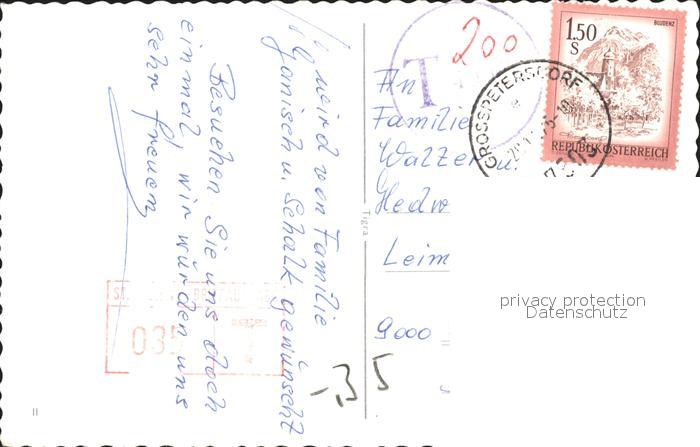 wird von Familie
Janisch u. Schalk gewünscht
Besuchen Sie uns doch
einmal, wir würden uns
sehr freuen
Tigra
T
200
1.50
S
BLUDENZ
REPUBLIK ÖSTERREICH
GROSSPETERSDORF
An
Familie
Walzer u.
Hedw
Leim
9000
-,35
035
privacy protection
Datenschutz
II